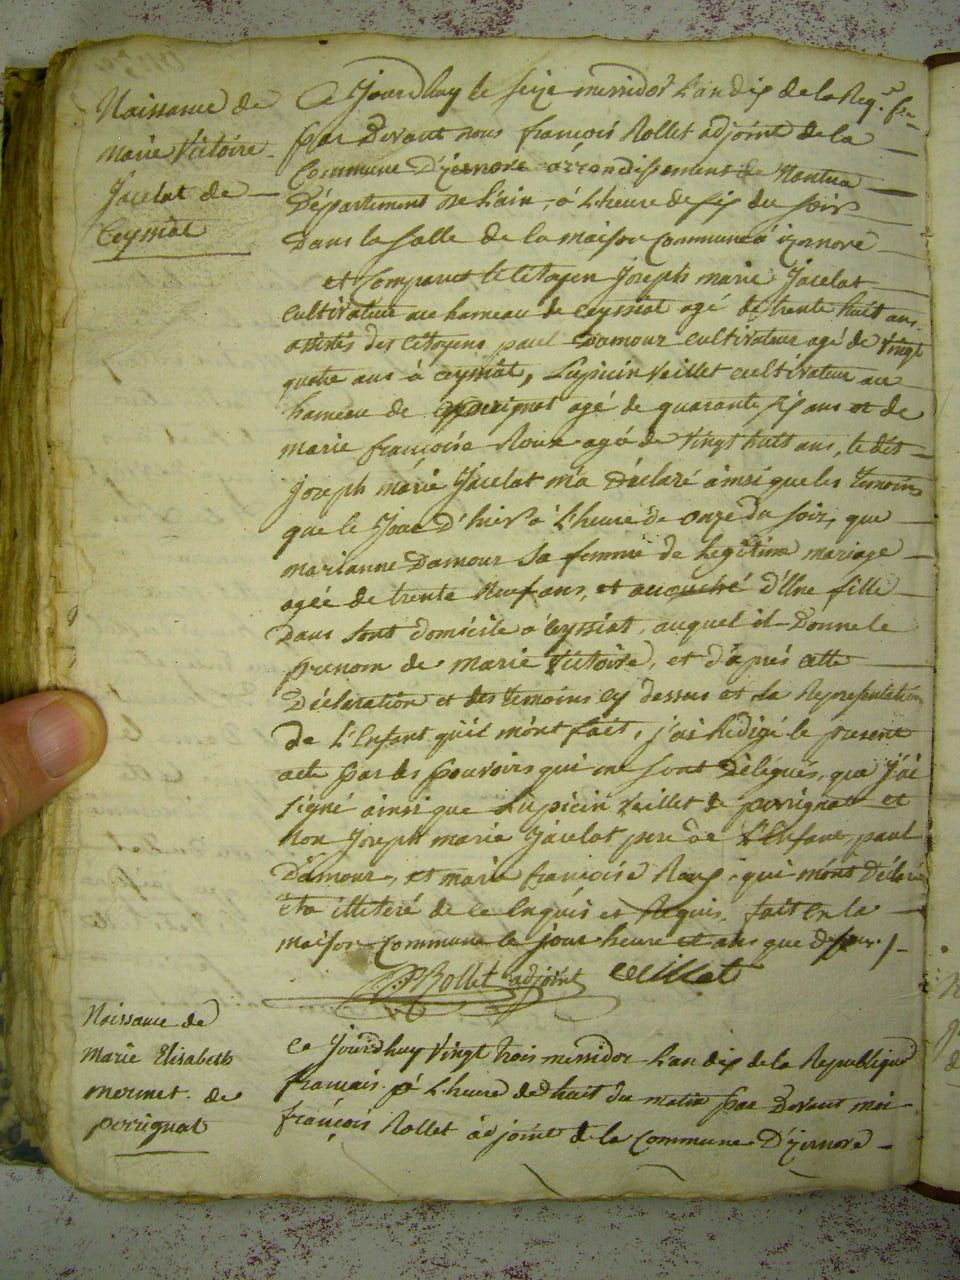 Naissance de
Marie Victoire
Jacelat de
Ceyssiat
Ce Jourdhuy le seize messidor L'an dix de la Rep.e f.se
par Devant nous françois Rollet adjoint de la
Commune D'izernore arrondissement de Nantua
Département de L'ain, à L'heure de six du soir
Dans la salle de la maison commune d'izernore
est Comparut le Citoyen Joseph marie Jacelat
cultivateur au hameau de Ceyssiat agé de trente huit ans
assistés des Citoyens paul Damour cultivateur agé de vingt
quatre ans à Ceyssiat, Lupicin Veillet cultivateur au
hameau de perrignat agé de quarante six ans et de
marie françoise Roux agée de Vingt huit ans, le dit
Joseph marie Jacelat m'a Déclaré ainsi que les temoins
que le Jour D'hier à L'heure de onze du soir, que
marianne Damour sa femme de Legitime mariage
agée de trente Neuf ans, et accouché d'Une fille
Dans sont domicile à Ceyssiat, auquel il Donne le
prenom de Marie Victoire, et d'après cette
Déclaration et des temoins cy dessus et La Representation
de L'Enfant qu'il m'ont fait, j'ai Rédigé le present
acte par les pouvoirs qui me sont délégués, que j'ai
signé ainsi que Lupicin Veillet de perrignat et
Non Joseph marie Jacelat pere de L'Enfant, paul
Damour, et marie françoise Roux, qui m'ont Déclaré
être illiteré de ce Enquis et Requis, fait En la
maison Commune le jour heure et ans que dessus./.
Rollet adjoint Veillet
Naissance de
Marie Elisabeth
mermet de
perrignat
Ce Jourdhuy Vingt trois messidor L'an dix de la Republique
francais à L'heure de huit du matin par Devant moi
françois Rollet adjoint de la Commune D'izernore